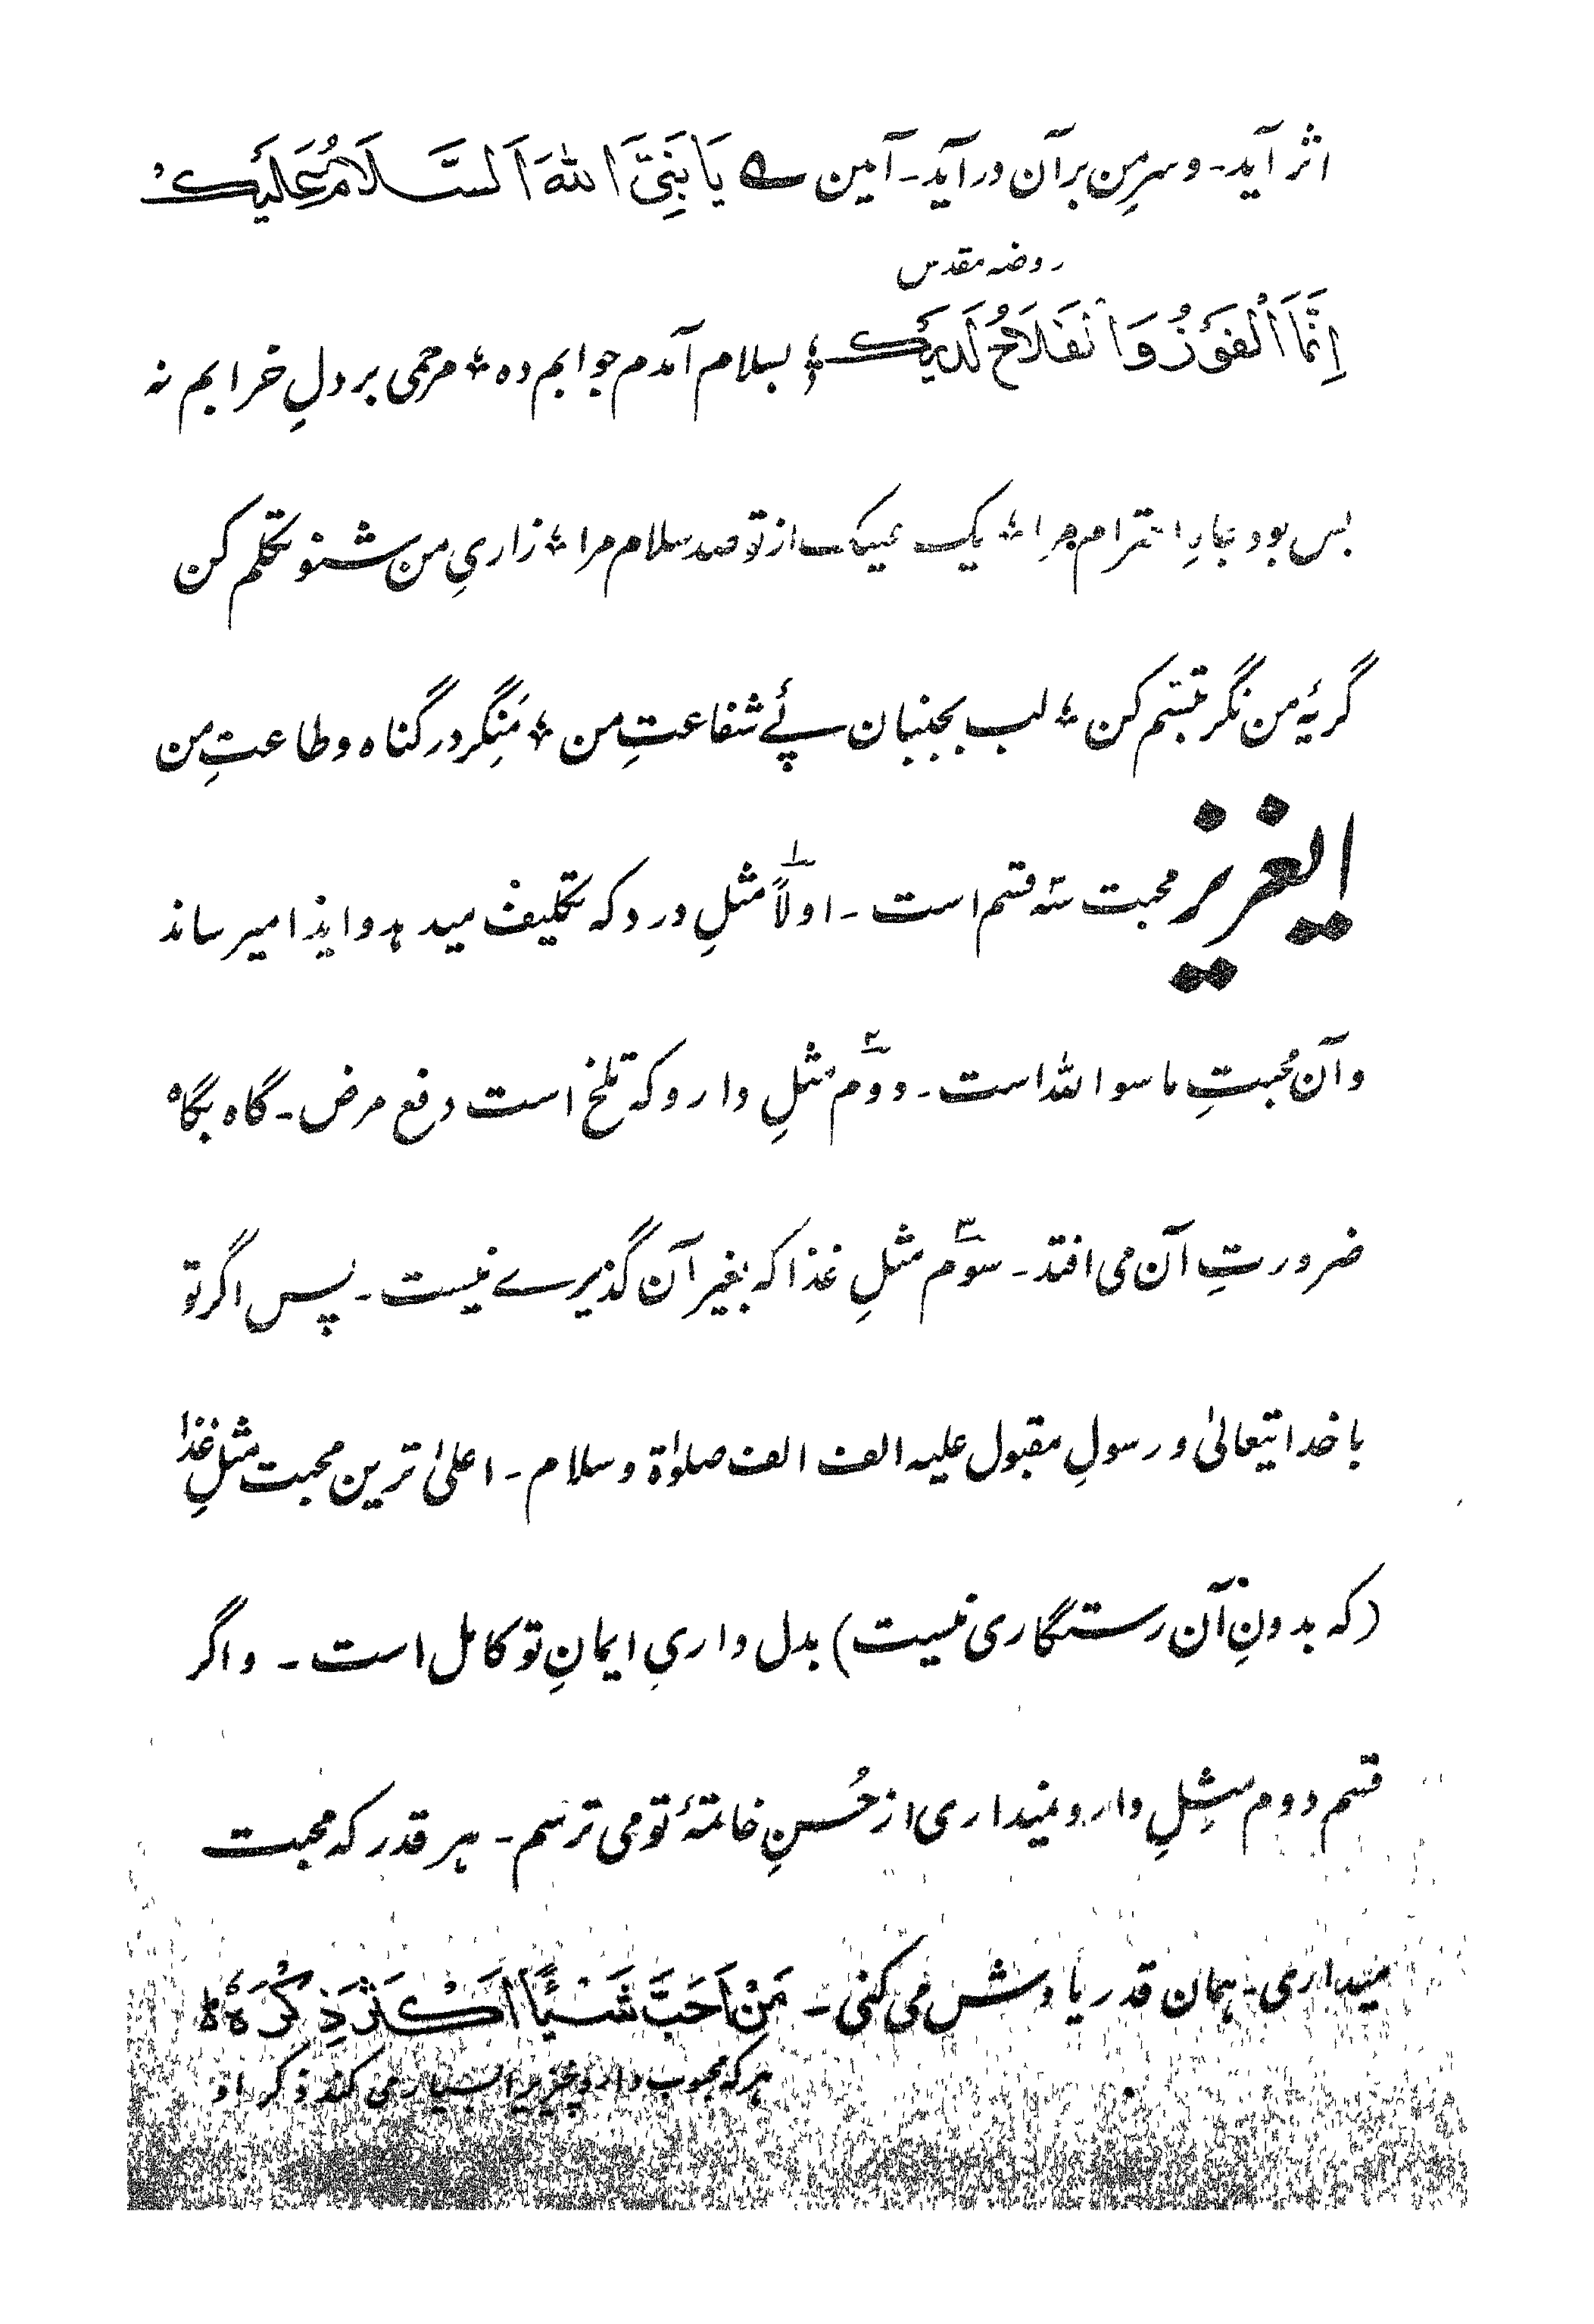 اثر آید۔ وسرِمن برآن درآید۔ آمین ے یَا نَبِیَّ اللهَ اَلسَّلَامُ عَلَیْکُ
روضه مقدس
اِنَّمَا اَلْفَوْزُ وَالْفَلَاحُ لَدَیْکَ ؛ بسلام آمدم جوابم ده ؛ مرحمی بر دلِ خرابم نه
بس بود جاهِ احترام مرا ؛ یک علیک از تو صد سلام مرا ؛ زاریِ من شنو تکلم کن
گریۂ من نگر تبسم کن ؛ لب بجنبان پئے شفاعتِ من ؛ مَنِگر در گناه و طاعتِ من
ایعزیز محبت سہ قسم است۔ اولاً مثلِ درد کہ تکلیف میدہد و ایذا میرساند
و آن مُحبتِ ماسوا الله است۔ دوم مثلِ دارو کہ تلخ است دفع مرض۔ گاه بگاه
ضرورتِ آن می افتد۔ سوم مثلِ غذا کہ بغیر آن گذیرے نیست۔ پس اگر تو
با خدایتعالیٰ و رسولِ مقبول علیہ الف الف صلوٰة و سلام۔ اعلیٰ ترین محبت مثلِ غذا
(کہ بدونِ آن رستگاری نیست) بدل داریِ ایمانِ تو کامل است۔ و اگر
قسم دوم مثِلِ دارو نمیداری از حُسنِ خاتمۂ تو می ترسم۔ ہر قدر کہ محبت
میداری۔ ہمان قدر یادش می کنی۔ مَنْ اَحَبَّ شَیْئًا اَکْثَرَ ذِکْرَهٗ ط
ہر کہ محبوب دارد چیزیرا بسیار می کند ذکر او